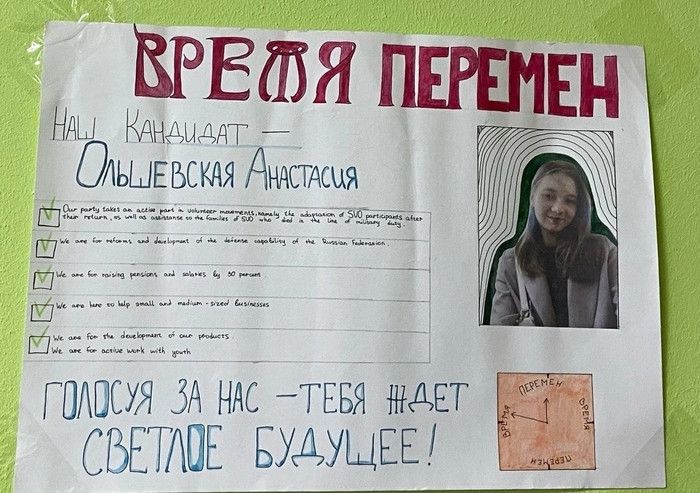 ВРЕМЯ ПЕРЕМЕН
НАШ КАНДИДАТ —
ОЛЬШЕВСКАЯ АНАСТАСИЯ
Our party takes an active part in volunteer movements, namely the adaptation of SVO participants after
their return, as well as assistanse to the families of SVO who died in the line of military duty.
We are for reforms and development of the defense capability of the Russian Federation.
We are for raising pensions and salaries by 30 percent.
We are here to help small and medium-sized businesses
We are for the development of our products.
We are for active work with youth
ГОЛОСУЯ ЗА НАС – ТЕБЯ ЖДЕТ
СВЕТЛОЕ БУДУЩЕЕ!
ПЕРЕМЕН
ВРЕМЯ
ПЕРЕМЕН
ВРЕМЯ